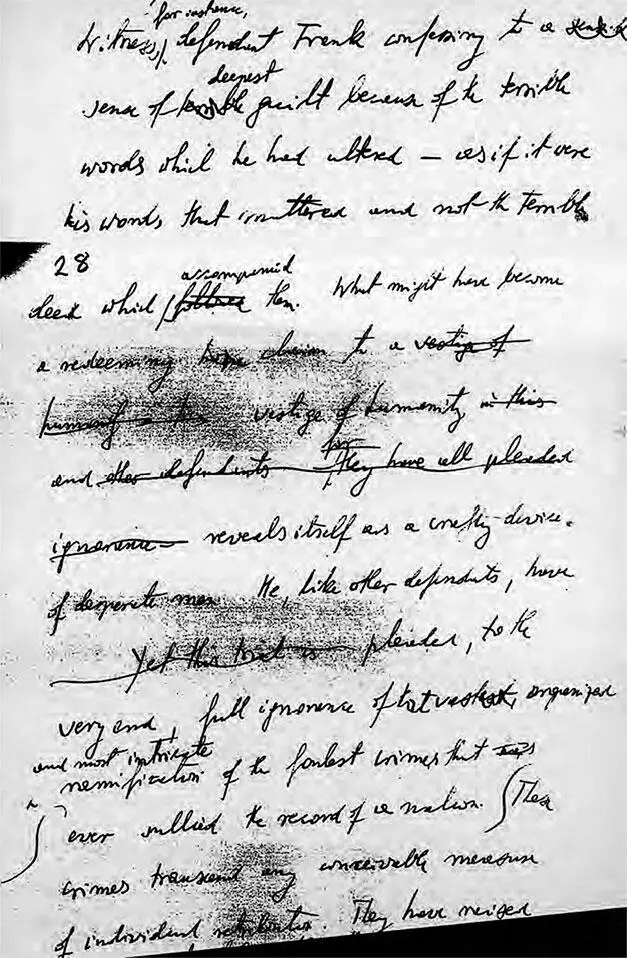 for instance,
Witness, defendant Frank confessing to a
deepest
sense of terrible guilt because of the terrible
words which he had uttered — as if it were
his words that mattered and not the terrible
28
accompanied
deed which followed them. What might have become
a redeeming claim to a vestige of
humanity vestige of humanity in this
for
and other defendants They have all pleaded
ignorance reveals itself as a crafty device
of desperate men He, like other defendants, have
Yet this trial is pleaded, to the
very end, full ignorance of that vast organized
and most intricate
ramification of the foulest crimes that was
ever sullied the record of a nation. These
crimes transcend any conceivable measure
of individual retribution. They have raised